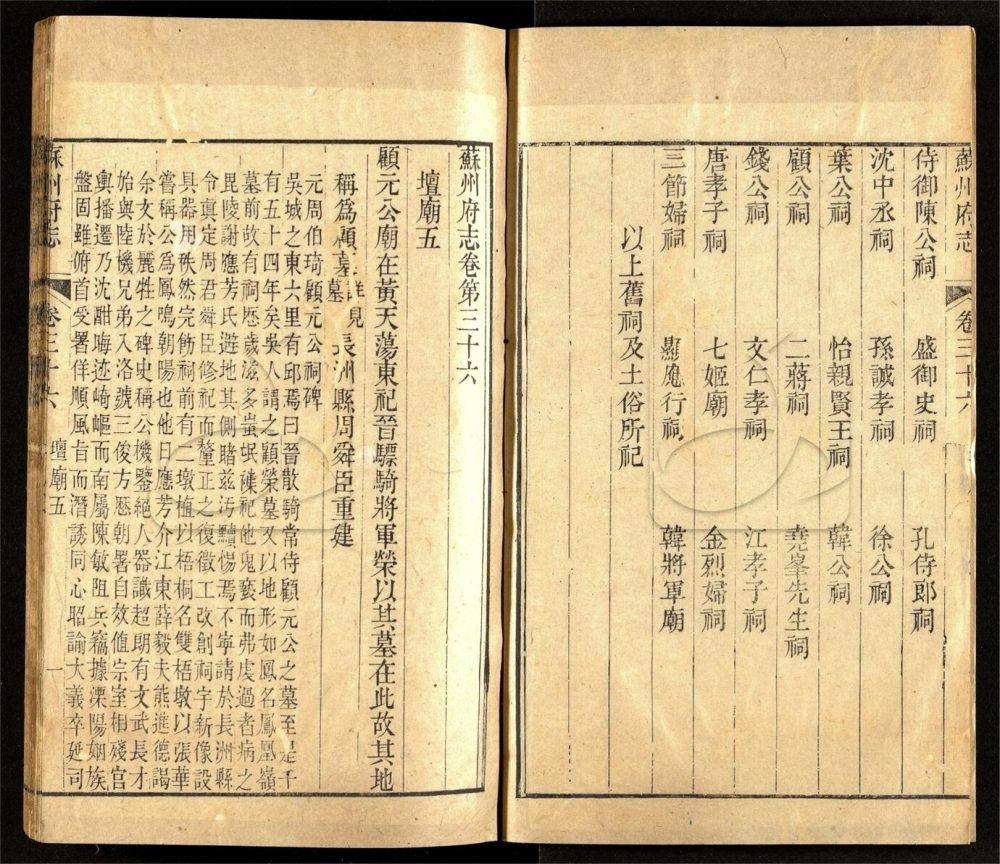 蘇州府志
卷三十六
侍御陳公祠 盛御史祠 孔侍郎祠
沈中丞祠 孫誠孝祠 徐公祠
葉公祠 怡親賢王祠 韓公祠
顧公祠 二蔣祠 堯峯先生祠
錢公祠 文仁孝祠 江孝子祠
唐孝子祠 七姬廟 金烈婦祠
三節婦祠 顯應行祠 韓將軍廟
以上舊祠及土俗所祀
蘇州府志卷第三十六
壇廟五
顧元公廟在黃天蕩東祀晉驃騎將軍榮以其墓在此故其地
稱爲顧墓 墓 見 長洲縣周舜臣重建
元周伯琦顧元公祠碑
吳城之東六里有邱焉曰晉散騎常侍顧元公之墓至是千
有五十四年矣吳人謂之顧榮墓又以地形如鳳名鳳凰嶺
墓前故有祠歷歲滋多蚩氓褋祀他鬼褻而弗虔過者病之
毘陵謝應芳氏避地其側睹兹汚黷惕焉不寧請於長洲縣
令真定周君舜臣修祀而釐正之復徵工改創祠宇新像設
具器用秩然完飭祠前有二墩植以梧桐名雙梧墩以張華
嘗稱公爲鳳鳴朝陽也他日應芳介江東薛毅夫熊進德謁
余文於麗牲之碑史稱公機鑒絕人器識超朗有文武長才
始與陸機兄弟入洛號三俊方歷朝署自效值宗室相殘官
輿播遷乃沈酣晦迹崎嶇而南屬陳敏阻兵竊據溧陽姻族
盤固雖俯首受署佯順風旨而潛誘同心昭諭大義卒延司
蘇州府志
卷三十六
壇廟五
一